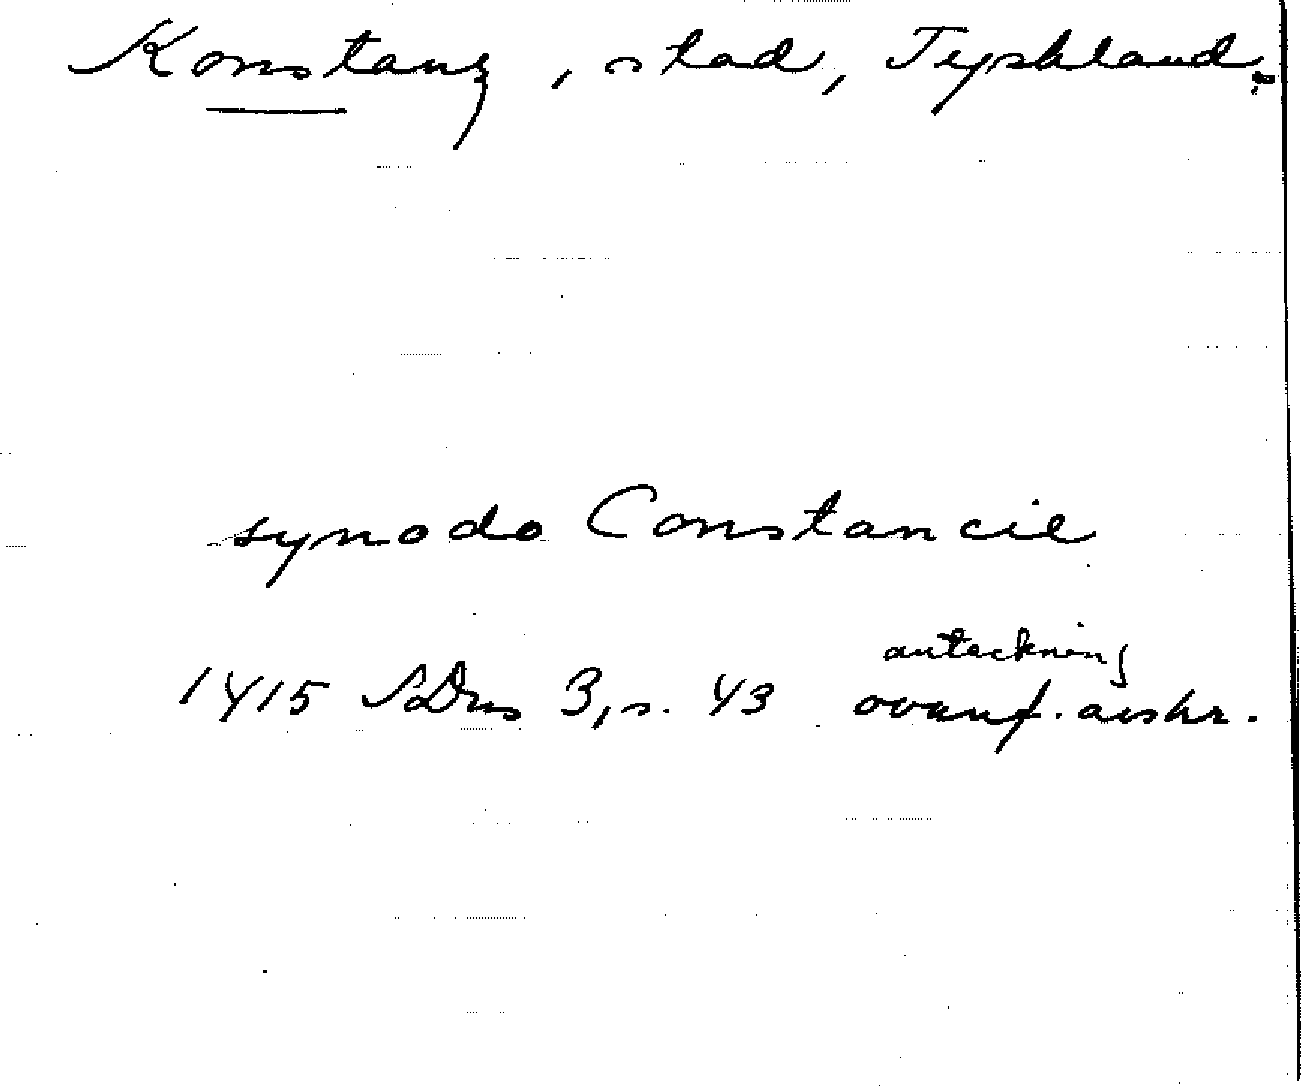 Konstanz, stad, Tyskland.
synodo Constancie
anteckning
1415 SDns 3, s. 43 ovanf. avskr.